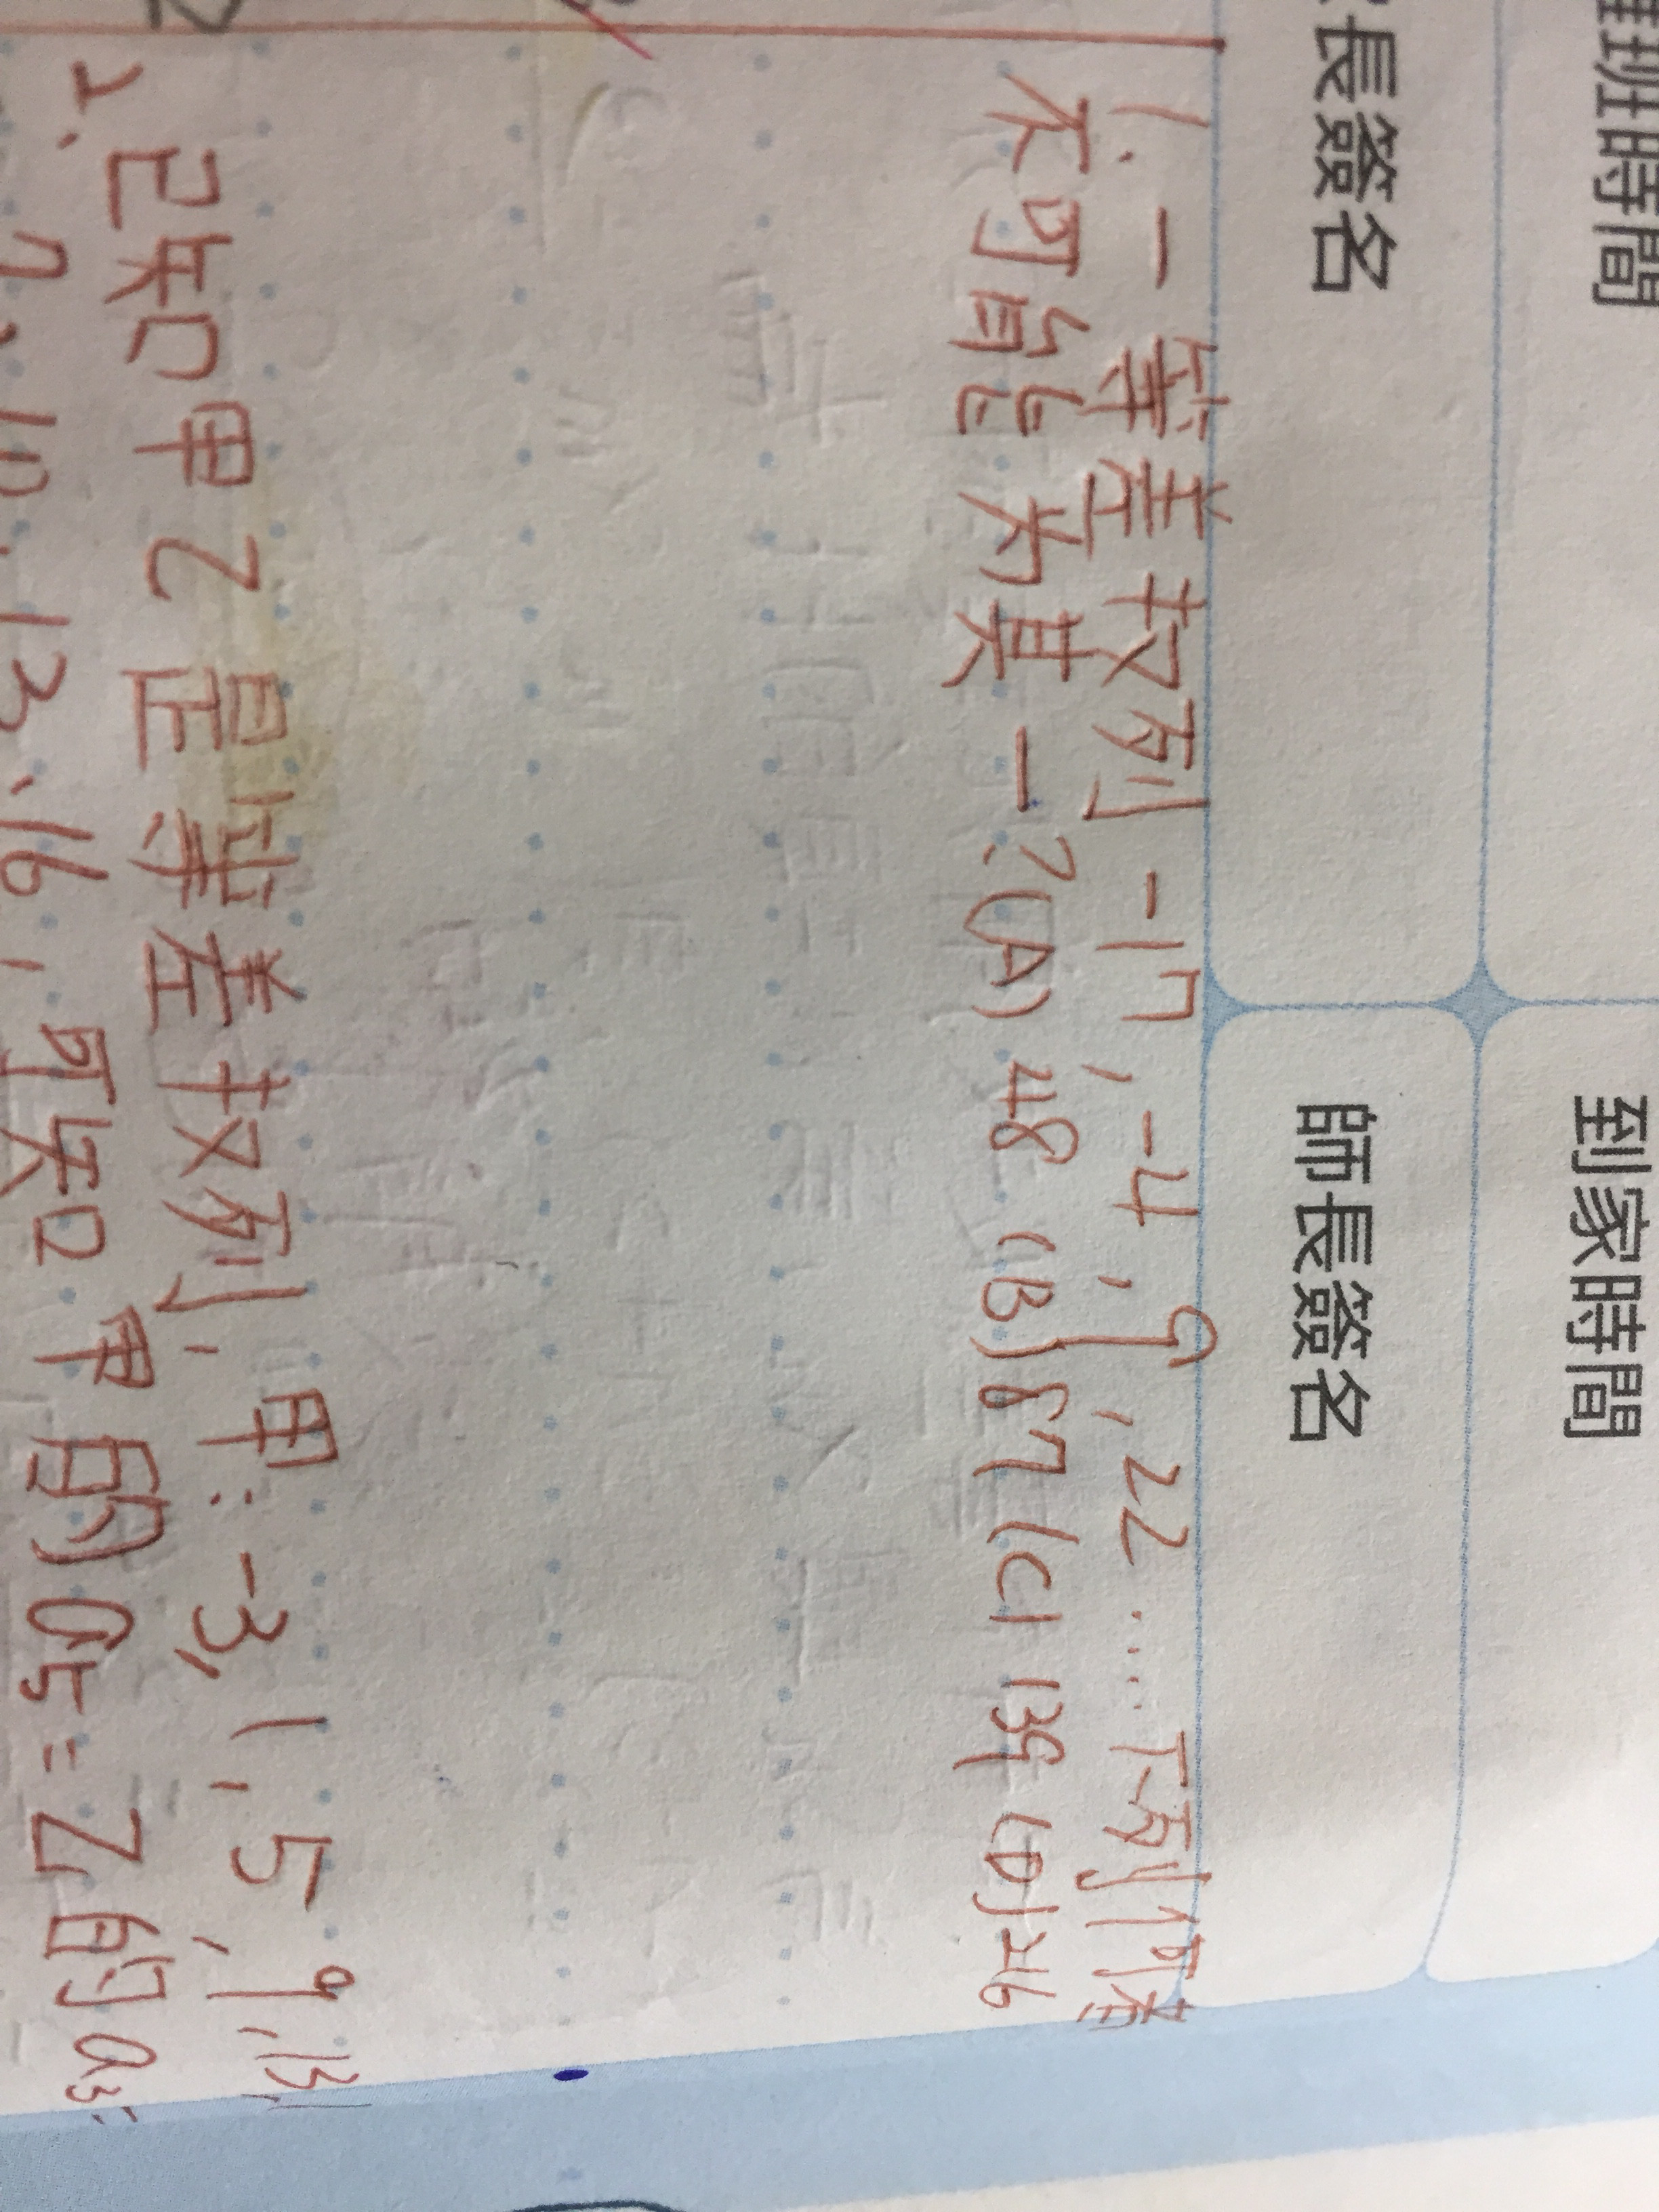 推班時間
到家時間
長簽名
師長簽名
1. 一等差数列 -17, -4, 9, 22 … 下列何者
不可能為其一? (A) 48 (B) 87 (C) 139 (D) 246
2、已知甲乙是等差数列, 甲: -3, 1, 5, 9, 13,
10、13、16, 可知甲的a5=乙的a3=